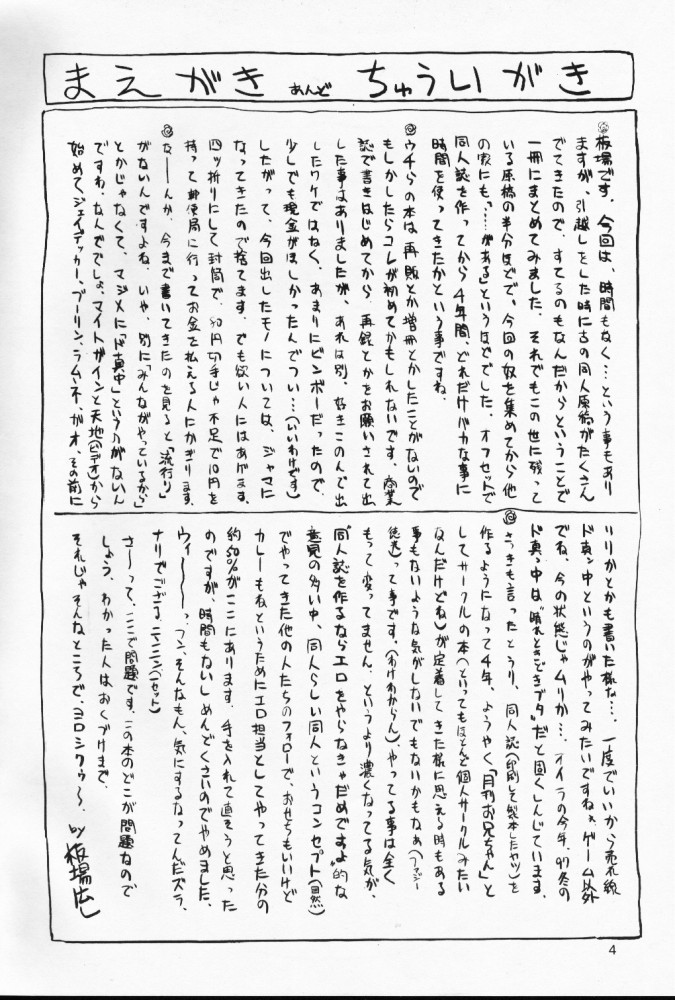 まえがき あんど ちゅういがき
◎板場です。今回は、時間もなく…という事もあり
ますが、引越しをした時に古の同人原稿がたくさん
でてきたので、すてるのもなんだからということで
一冊にまとめてみました。それでもこの世に残って
いる原稿の半分ほどで、今回の奴を集めてから他
の家にも、“……がある”というほどでした。オフセットで
同人誌を作ってから4年間、どれだけバカな事に
時間を使ってきたかという事ですね。
◎ウチらの本は、再販とか増冊とかしたことがないので
もしかしたらコレが初めてかもしれないです。商業
誌で書きはじめてから、再録とかをお願いされて出
した事はありましたが、あれは別。好きこのんで出
したワケではなく、あまりにビンボーだったので、
少しでも現金がほしかったんでつい…(いいわけです)
したがって、今回出したモノについては、ジャマに
なってきたので捨てます。でも欲い人にはあげます。
四ッ折りにして封筒で、80円切手じゃ不足で10円を
持って郵便局に行ってお金を払える人にかぎります。
◎な――んか、今まで書いてきたのを見ると「流行り」
がないんですよね。いや、別に「みんながやっているから」
とかじゃなくて、マジメに「ド真中」というのがないん
ですわ。なんででしょ。マイトガインと天地(ビデオ)から
始めて、ジェイデッカー、プーリン、ラムネ、ガオ、その前に
いりかとかも書いた様な…。一度でいいから売れ線
ド真ン中というのがやってみたいですねぇ。ゲーム以外
でね、今の状態じゃムリか…。オイラの今年、97冬の
ド真っ中は“晴れときどきブタ”だと固くしんじています。
◎さっきも言ったとうり、同人誌(印刷して製本したヤツ)を
作るようになって4年、ようやく「月刊お兄ちゃん」と
してサークルの本(といってもほとんど個人サークルみたい
なんだけどね)が定着してきた様に思える時もある
事もないような気がしないでもないかもなぁ(ファジー
)って事です。(わけわからん)、やってる事は全く
もって変ってません。というより濃くなってる気が、
“同人誌を作るならエロをやらなきゃだめですよ”的な
意見の多い中、同人らしい同人というコンセプト(自然)
でやってきた他の人たちのフォローで、おせちもいいけど
カレーもねというためにエロ担当としてやってきた分の
約50%がここにあります。手を入れて直そうと思った
のですが、時間もないしめんどくさいのでやめました。
ウィ―――っ、フン、そんなもん、気にするなってんだズラ、
ナリでござる、ニンニン(1セット)
さ――って、ここで問題です。この本のどこが問題なので
しょう、わかった人はおくづけまで。
それじゃそんなところで、ヨロシクゥ〜。
by 板場広し
4